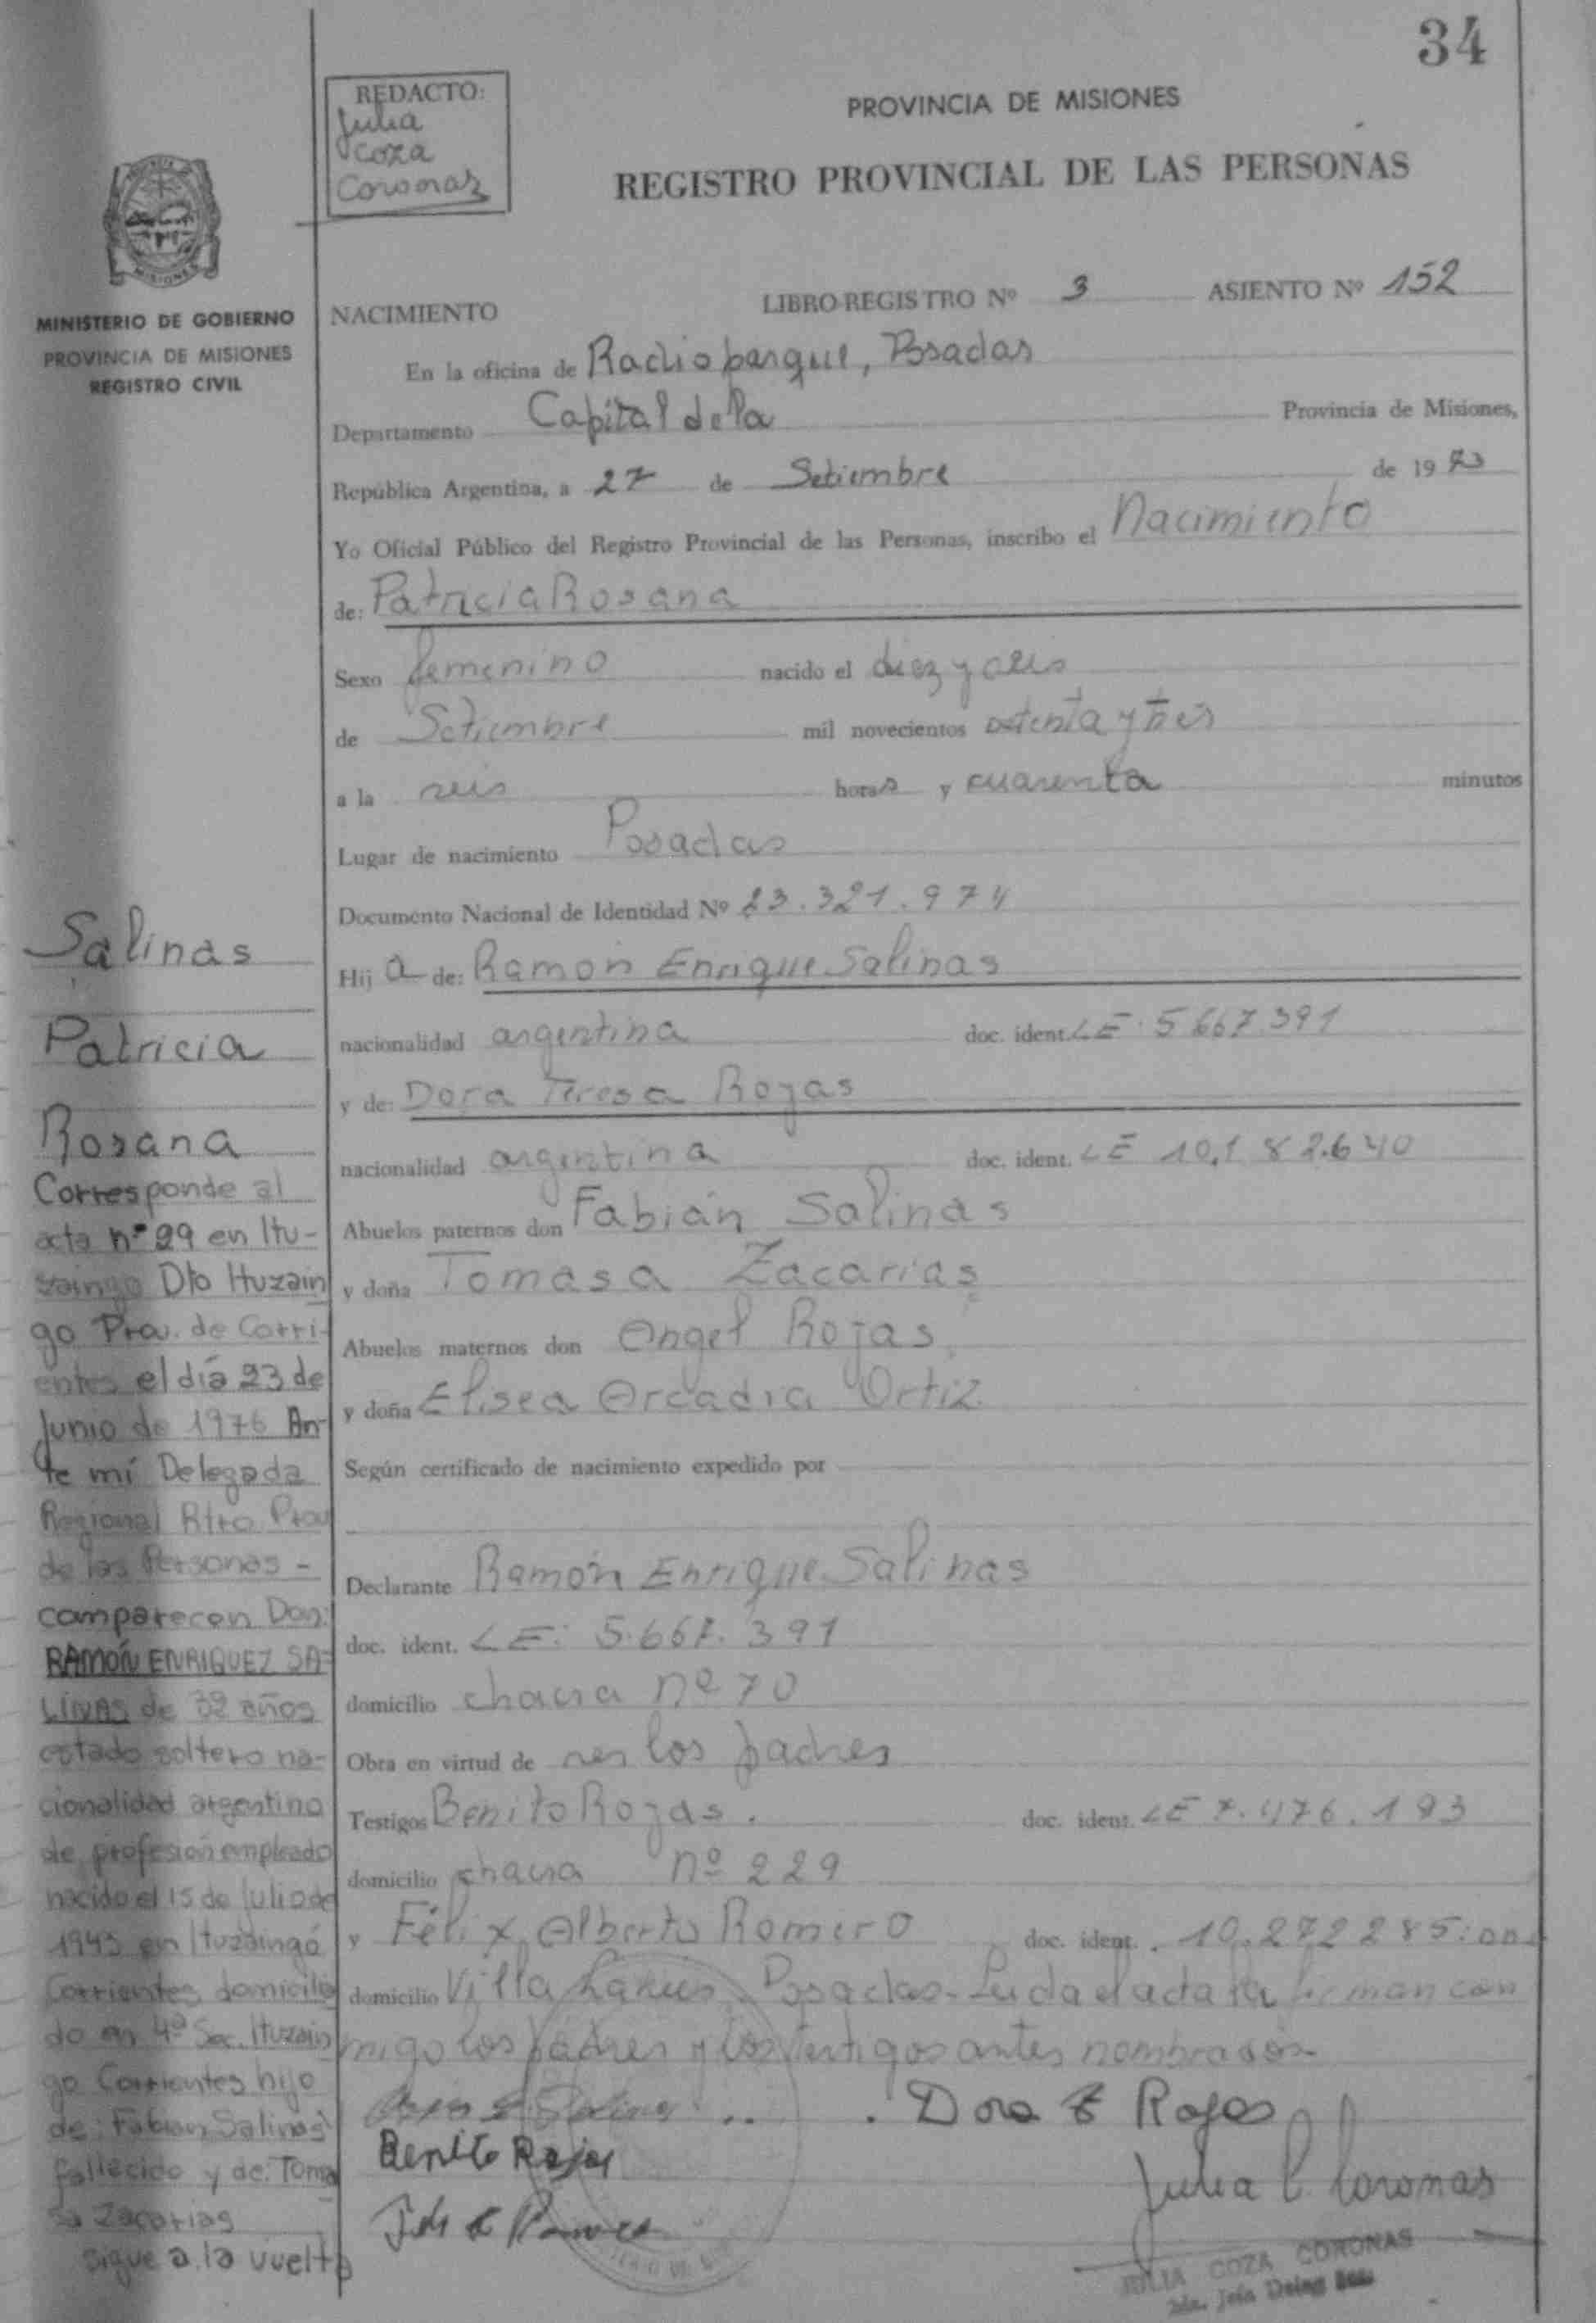 34
REDACTO:
Julia
Coza
Coronas
PROVINCIA DE MISIONES
REGISTRO PROVINCIAL DE LAS PERSONAS
MISIONES
MINISTERIO DE GOBIERNO
PROVINCIA DE MISIONES
REGISTRO CIVIL
NACIMIENTO LIBRO-REGISTRO Nº 3 ASIENTO Nº 152
En la oficina de Radioparque, Posadas
Departamento Capital de la Provincia de Misiones,
República Argentina, a 27 de Setiembre de 1973
Yo Oficial Público del Registro Provincial de las Personas, inscribo el Nacimiento
de: Patricia Rosana
Sexo femenino nacido el diez y seis
de Setiembre mil novecientos setenta y tres
a la seis horas y cuarenta minutos
Lugar de nacimiento Posadas
Documento Nacional de Identidad Nº 23.321.974
Hij a de: Ramón Enrique Salinas
nacionalidad argentina doc. ident. LE 5667391
y de: Dora Teresa Rojas
nacionalidad argentina doc. ident. LE 10.182.640
Abuelos paternos don Fabián Salinas
y doña Tomasa Zacarías
Abuelos maternos don Angel Rojas
y doña Elisea Arcadia Ortiz
Según certificado de nacimiento expedido por
Declarante Ramón Enrique Salinas
doc. ident. LE: 5.667.391
domicilio chacra nº 70
Obra en virtud de ser los padres
Testigos Benito Rojas. doc. ident. LE 7.476.193
domicilio chacra nº 229
y Félix Alberto Romero doc. ident. 10.272.285
domicilio Villa Posadas- Leida el acta la firman con
migo los padres y los testigos antes nombrados-
Dora T Rojas
Benito Rojas
Julia C. Coronas
JULIA COZA CORONAS
Salinas
Patricia
Rosana
Corresponde al
acta nº 29 en Itu-
zaingo Dto Ituzain
go Prov. de Corri-
entes el día 23 de
Junio de 1976 An-
te mí Delegada
Regional Rtro Prov
de las Personas -
comparecen Don:
RAMÓN ENRIQUEZ SA-
LINAS de 32 años
estado soltero na-
cionalidad argentino
de profesión empleado
nacido el 15 de Julio de
1943 en Ituzaingó
Corrientes domicilia
do en 4ª Sec. Ituzain
go Corrientes hijo
de: Fabian Salinas
fallecido y de: Toma
sa Zacarias
sigue a la vuelta